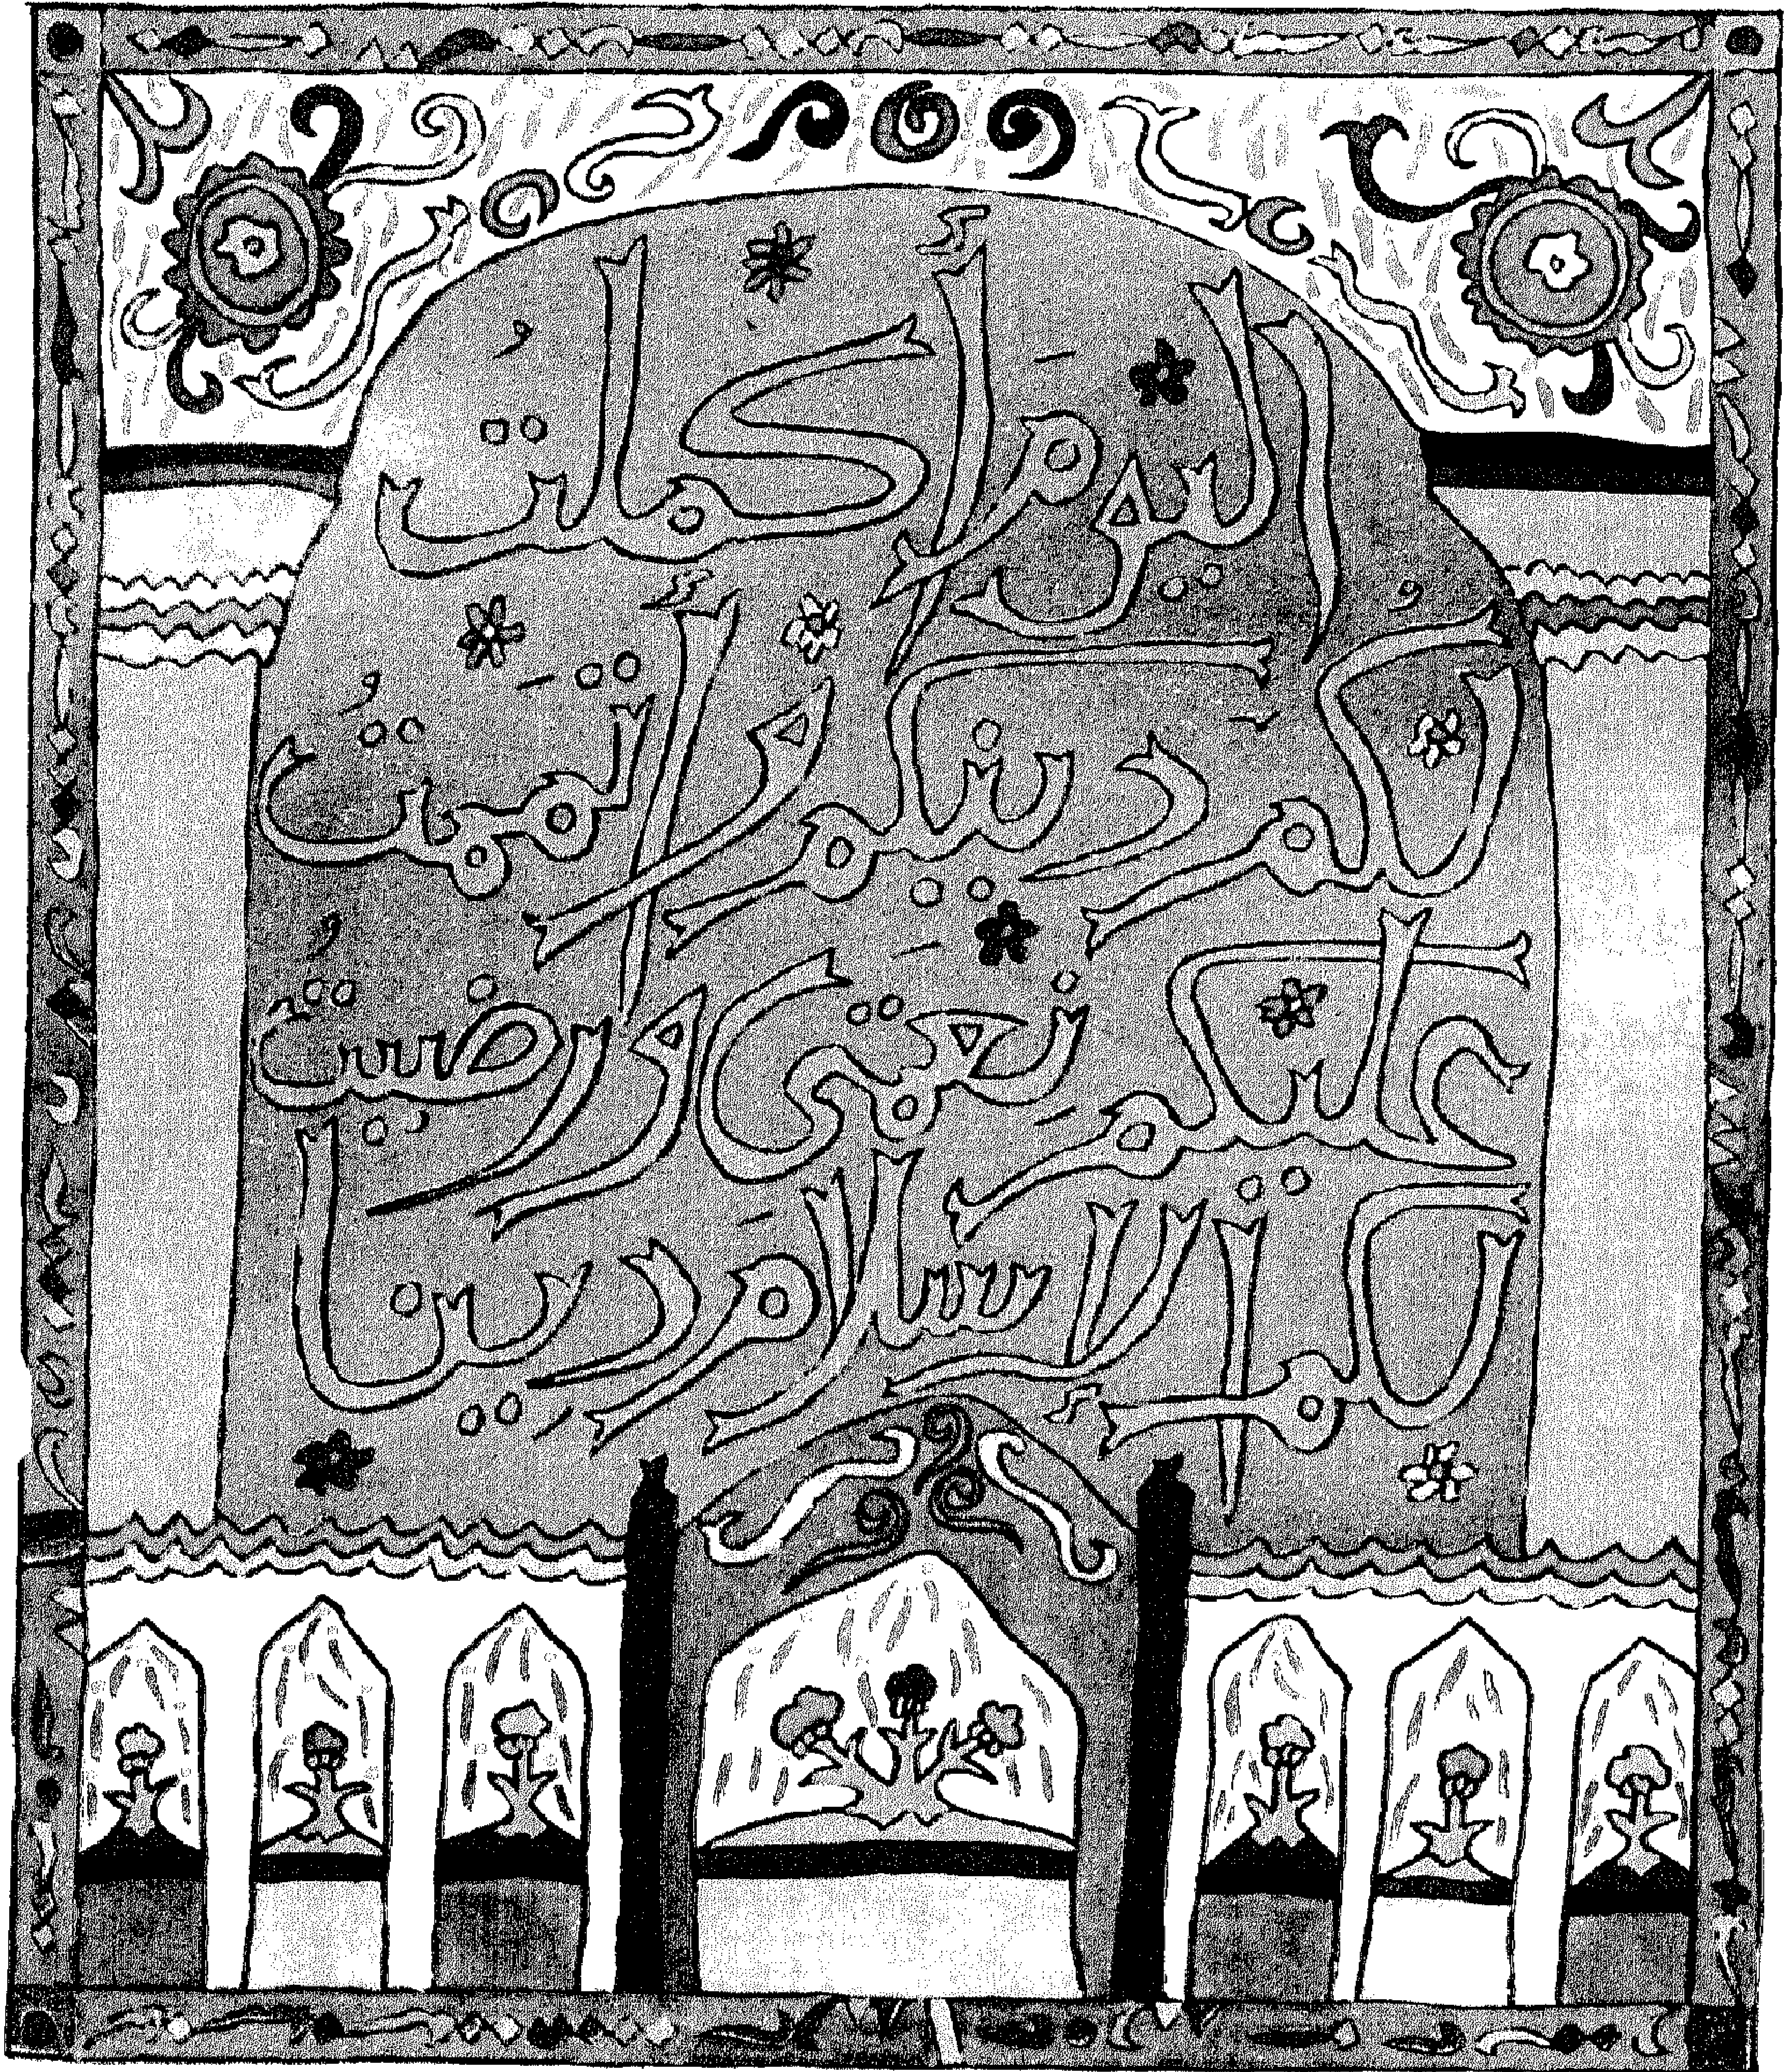 اليوم أكملت
لكم دينكم وأتممت
عليكم نعمتي ورضيت
لكم الإسلام دينا